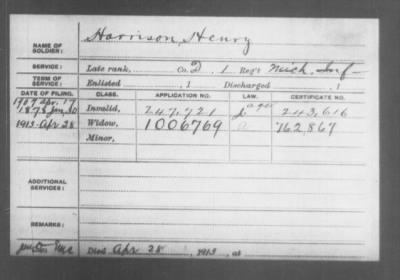 NAME OF SOLDIER: Harrison, Henry
SERVICE: Late rank, Co. D, 1 Reg't Mich. Inf
TERM OF SERVICE: Enlisted , 1 Discharged , 1
DATE OF FILING. CLASS. APPLICATION NO. LAW. CERTIFICATE NO.
1907 Apr. 17
1878 Jan, 30 Invalid, 247,721 age 243,616
1913-Apr 28 Widow, 1006769 762,867
Minor,
ADDITIONAL SERVICES:
REMARKS:
Died Apr 28 , 1913, at